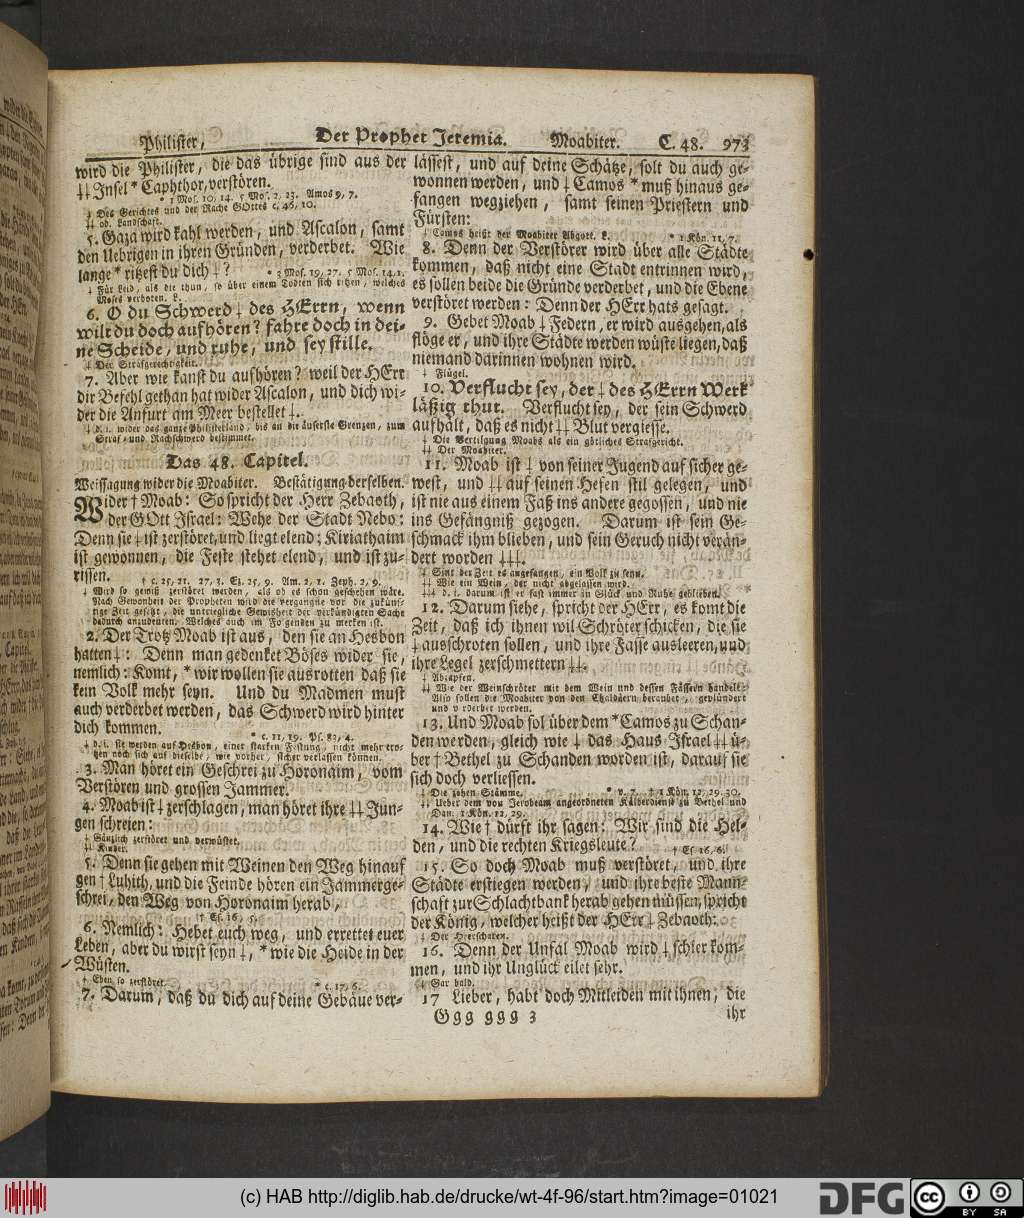 Philister, Der Prophet Jeremia. Moabiter. C. 48. 973
wird die Philister, die das übrige sind aus der
‡‡ Insel * Caphthor, verstören.
* 1 Mos. 10, 14. 5 Mos. 2, 23. Amos 9, 7.
‡ Des Gerichtes und der Rache GOttes c. 46, 10.
‡‡ od. Landschaft.
5. Gaza wird kahl werden, und Ascalon, samt
den Uebrigen in ihren Gründen, verderbet. Wie
lange * ritzest du dich ‡?
* 3 Mos. 19, 27. 5 Mos. 14, 1.
‡ Für Leid, als die thun, so über einem Todten sich ritzen, welches
Moses verboten. L.
6. O du Schwerd ‡ des HErrn, wenn
wilt du doch aufhören? fahre doch in dei-
ne Scheide, und ruhe, und sey stille.
‡ Der Strafgerechtigkeit.
7. Aber wie kanst du aufhören? weil der HErr
dir Befehl gethan hat wider Ascalon, und dich wi-
der die Anfurt am Meer bestellet ‡.
‡ d. i. wider das ganze Philisterland, bis an die äuserste Grenzen, zum
Straf- und Rachschwerd bestimmet.
Das 48. Capitel.
Weissagung wider die Moabiter. Bestätigung derselben.
Wider † Moab: So spricht der Herr Zebaoth,
der GOtt Israel: Wehe der Stadt Nebo:
Denn sie ‡ ist zerstöret, und liegt elend; Kiriathaim
ist gewonnen, die Feste stehet elend, und ist zu-
rissen.
† c. 25, 21. 27, 3. Ez. 25, 9. Am. 2, 1. Zeph. 2, 9.
‡ Wird so gewiß zerstöret werden, als ob es schon geschehen wäre.
Nach Gewonheit der Propheten wird die vergangne vor die zukünf-
tige Zeit gesetzt, die untriegliche Gewisheit der verkündigten Sache
dadurch anzudeuten. Welches auch im Folgenden zu merken ist.
2. Der Trotz Moab ist aus, den sie an Hesbon
hatten ‡: Denn man gedenket Böses wider sie,
nemlich: Komt, * wir wollen sie ausrotten daß sie
kein Volk mehr seyn. Und du Madmen must
auch verderbet werden, das Schwerd wird hinter
dich kommen.
* c. 11, 19. Ps. 83, 4.
‡ d. i. sie werden auf Hesbon, einer starken Festung, nicht mehr tro-
tzen noch sich auf dieselbe, wie vorher, sicher verlassen können.
3. Man höret ein Geschrei zu Horonaim, vom
Verstören und grossen Jammer.
4. Moab ist ‡ zerschlagen, man höret ihre ‡‡ Jun-
gen schreien:
‡ Gänzlich zerstöret und verwüstet.
‡‡ Kinder.
5. Denn sie gehen mit Weinen den Weg hinauf
gen † Luhith, und die Feinde hören ein Jammerge-
schrei, den Weg von Horonaim herab,
† Es. 16, 5.
6. Nemlich: Hebet euch weg, und errettet euer
Leben, aber du wirst seyn ‡, * wie die Heide in der
Wüsten.
‡ Eben so zerstöret. * c. 17, 6.
7. Darum, daß du dich auf deine Gebäue ver-
lässest, und auf deine Schätze, solt du auch ge-
wonnen werden, und ‡ Camos * muß hinaus ge-
fangen wegziehen, samt seinen Priestern und
Fürsten:
‡ Camos heißt der Moabiter Abgott. L. * 1 Kön. 11, 7.
8. Denn der Verstörer wird über alle Städte
kommen, daß nicht eine Stadt entrinnen wird,
es sollen beide die Gründe verderbet, und die Ebene
verstöret werden: Denn der HErr hats gesagt.
9. Gebet Moab ‡ Federn, er wird ausgehen, als
flöge er, und ihre Städte werden wüste liegen, daß
niemand darinnen wohnen wird.
‡ Flügel.
10. Verflucht sey, der ‡ des HErrn Werk
läßig thut. Verflucht sey, der sein Schwerd
aufhält, daß es nicht ‡‡ Blut vergiesse.
‡ Die Vertilgung Moabs als ein götliches Strafgericht.
‡‡ Der Moabiter.
11. Moab ist ‡ von seiner Jugend auf sicher ge-
west, und ‡‡ auf seinen Hefen stil gelegen, und
ist nie aus einem Faß ins andere gegossen, und nie
ins Gefängniß gezogen. Darum ist sein Ge-
schmack ihm blieben, und sein Geruch nicht verän-
dert worden ‡‡‡.
‡ Sint der Zeit es angefangen, ein Volk zu seyn.
‡‡ Wie ein Wein, der nicht abgelassen wird.
‡‡‡ d. i. darum ist er fast immer in Glück und Ruhe geblieben.
12. Darum siehe, spricht der HErr, es komt die
Zeit, daß ich ihnen wil Schröter schicken, die sie
‡ ausschroten sollen, und ihre Fasse ausleeren, und
ihre Legel zerschmettern ‡‡.
‡ Abzapfen.
‡‡ Wie der Weinschröter mit dem Wein und dessen Fässern handelt:
Also sollen die Moabiter von den Chaldäern beraubet, geplündert
und verderbet werden.
13. Und Moab sol über dem * Camos zu Schan-
den werden, gleich wie ‡ das Haus Israel ‡‡ ü-
ber † Bethel zu Schanden worden ist, darauf sie
sich doch verliessen.
‡ Die zehen Stämme. * v. 7. † 1 Kön. 12, 29. 30.
‡‡ Ueber dem von Jerobeam angeordneten Kälberdienst zu Bethel und
Dan. 1 Kön. 12, 29.
14. Wie † dürft ihr sagen: Wir sind die Hel-
den, und die rechten Kriegsleute?
† Es. 16, 6.
15. So doch Moab muß verstöret, und ihre
Städte erstiegen werden, und ihre beste Mann-
schaft zur Schlachtbank herab gehen müssen, spricht
der König, welcher heißt der HErr ‡ Zebaoth:
‡ Der Heerscharen.
16. Denn der Unfal Moab wird ‡ schier kom-
men, und ihr Unglück eilet sehr.
‡ Gar bald.
17 Lieber, habt doch Mitleiden mit ihnen, die
Ggg ggg 3 ihr
(c) HAB http://diglib.hab.de/drucke/wt-4f-96/start.htm?image=01021
DFG
cc BY SA